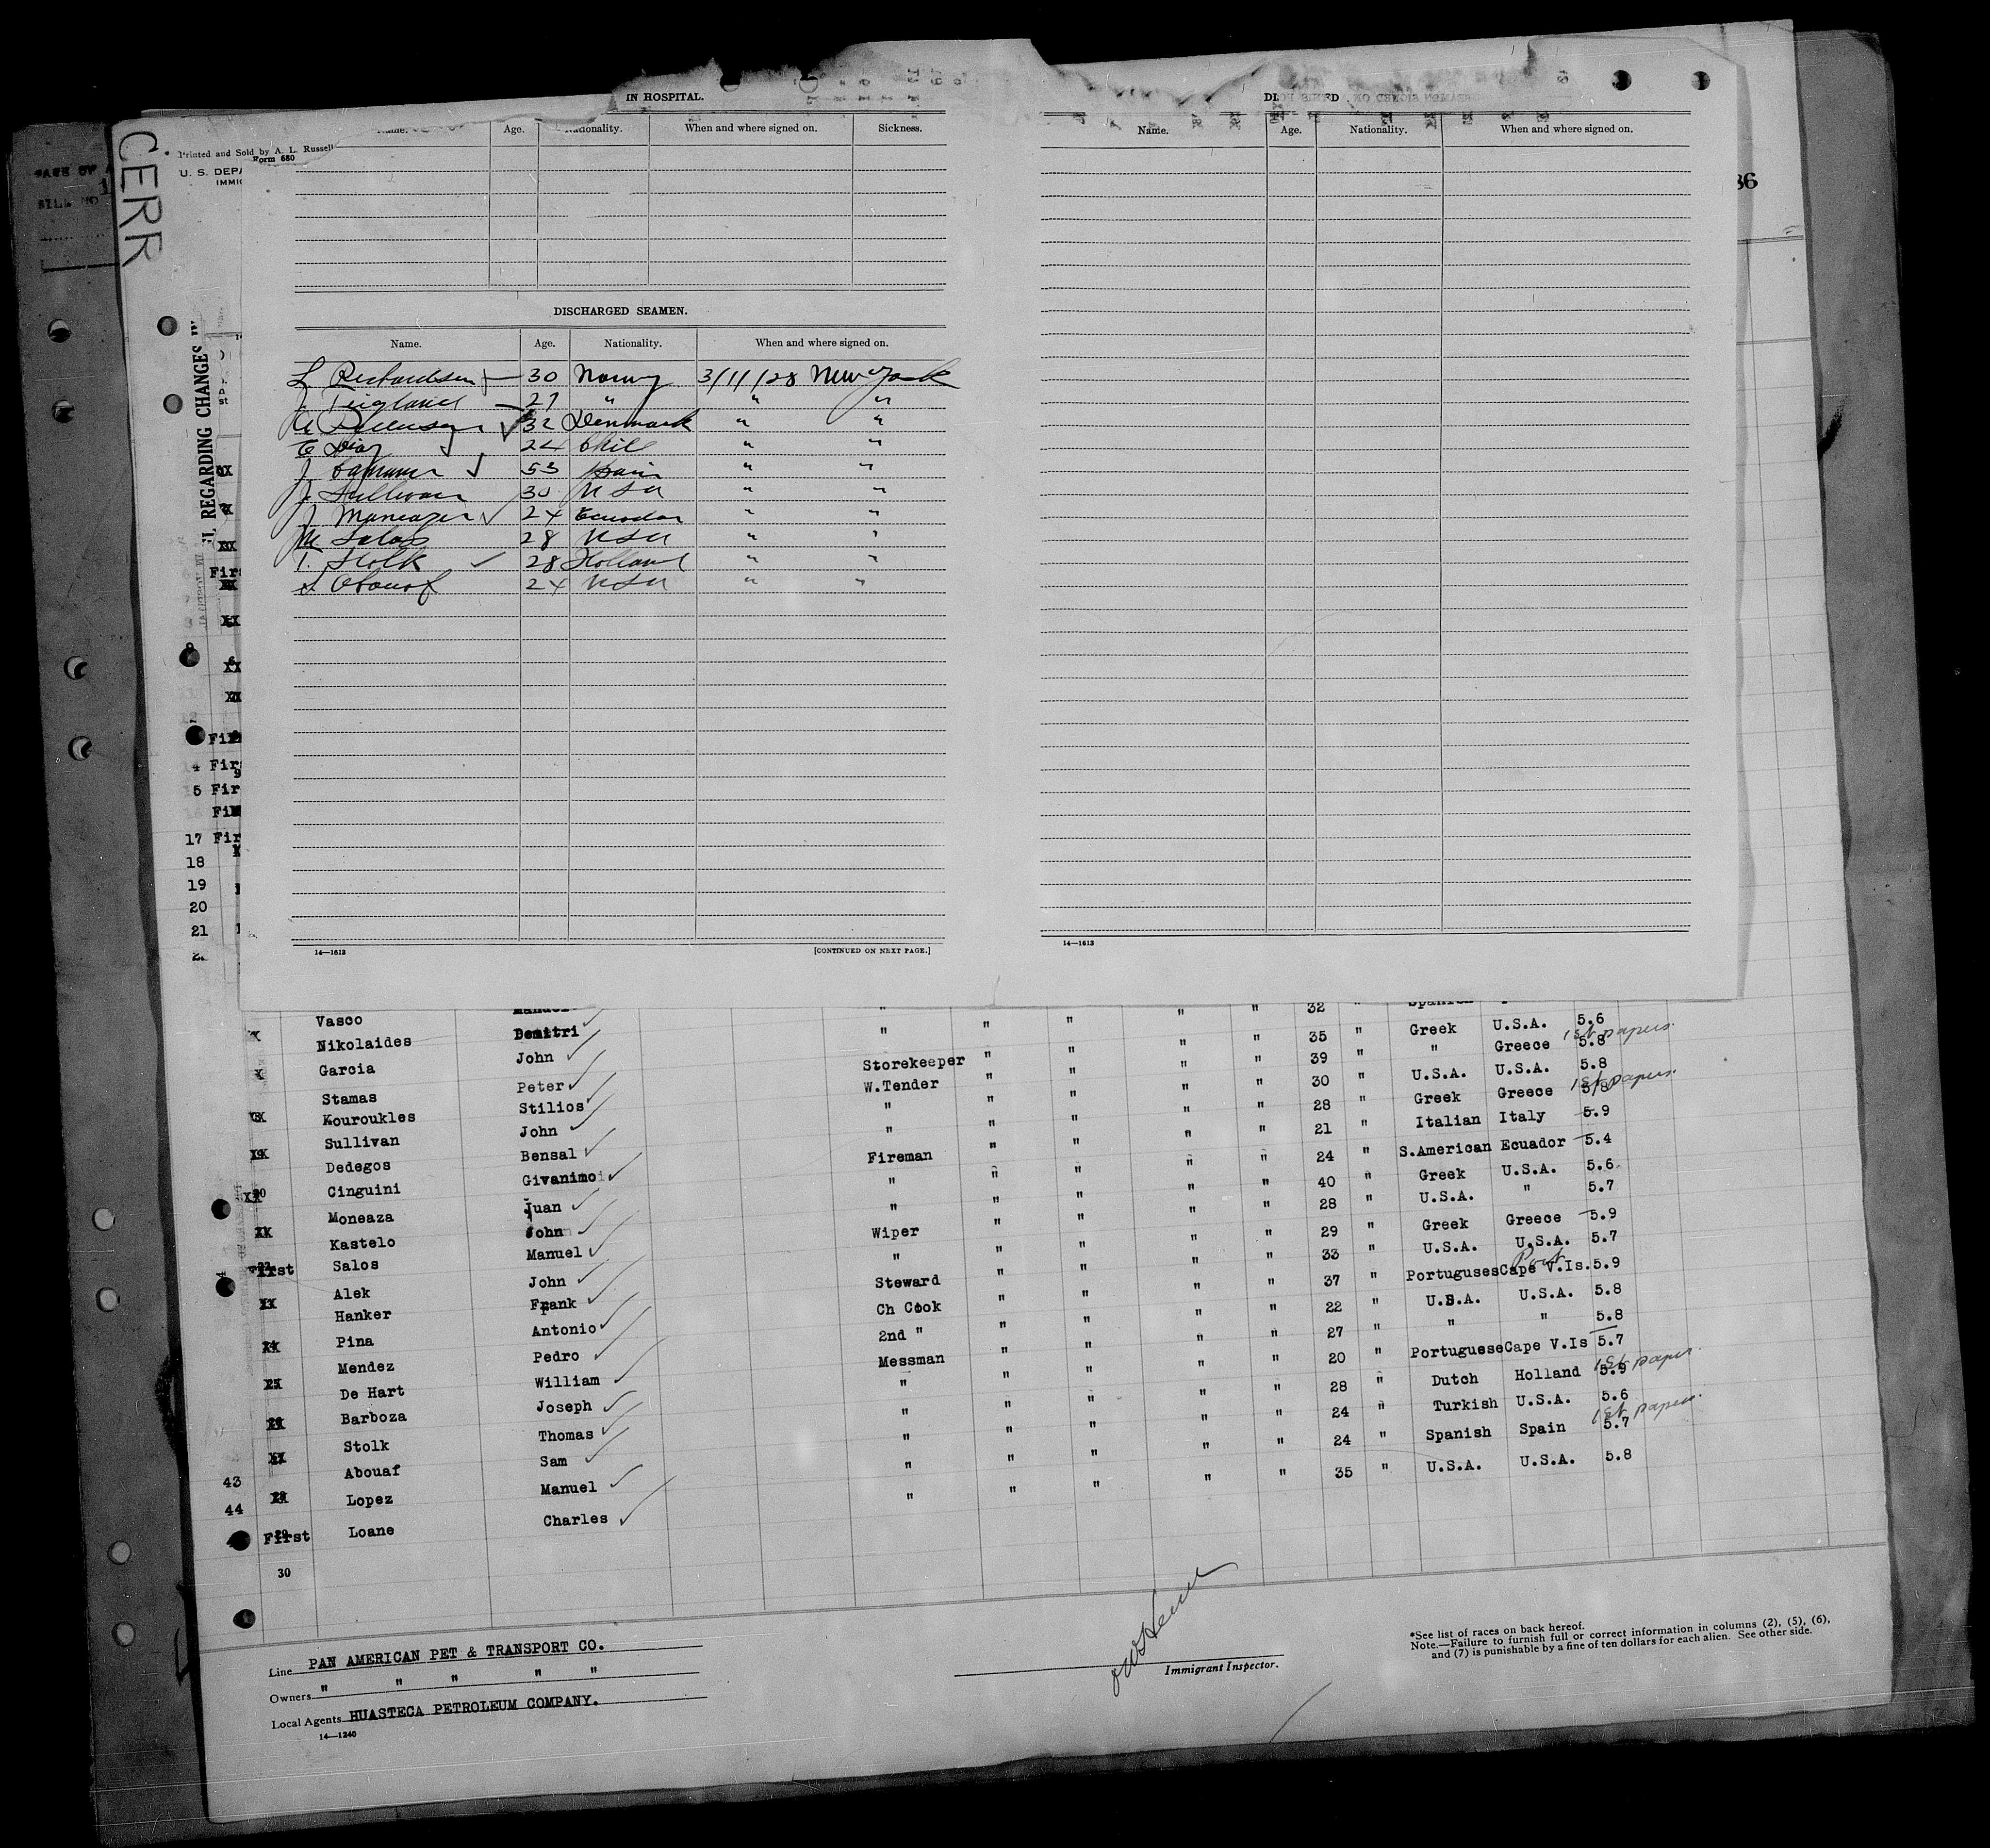 CERR
Printed and Sold by A. L. Russell
Form 680
U. S. DEPA
IMMIG
REGARDING CHANGES IN
86
IN HOSPITAL.
Name. Age. Nationality. When and where signed on. Sickness.
DISCHARGED SEAMEN.
Name. Age. Nationality. When and where signed on.
L Richardsen 30 Norwy 3/11/28 New York
27 " " "
32 Denmark " "
E Diaz 24 Chile " "
J 53 Spain " "
J Sullivan 30 USA " "
J 24 Ecuador " "
M Salos 28 USA " "
T. Stolk 28 Holland " "
S Abouaf 24 USA " "
14—1613 [CONTINUED ON NEXT PAGE.]
Name. Age. Nationality. When and where signed on.
14—1613
17 Fir
18
19
20
21
Vasco Manuel " 32 " Spanish
Nikolaides Demitri " " " " " 35 " Greek U.S.A. 5.6
Garcia John Storekeeper " " " " 39 " " Greece 5.8 1st papers
Stamas Peter W.Tender " " " " 30 " U.S.A. U.S.A. 5.8
Kouroukles Stilios " " " " " 28 " Greek Greece 5.8 1st papers.
Sullivan John " " " " " 21 " Italian Italy 5.9
Dedegos Bensal Fireman " " " " 24 " S.American Ecuador 5.4
Cinguini Givanimo " " " " " 40 " Greek U.S.A. 5.6
Moneaza Juan " " " " " 28 " U.S.A. " 5.7
Kastelo John Wiper " " " " 29 " Greek Greece 5.9
First Salos Manuel " " " " " 33 " U.S.A. U.S.A. 5.7
Alek John Steward " " " " 37 " Portuguses Cape V.Is. 5.9
Hanker Frank Ch Cook " " " " 22 " U.S.A. U.S.A. 5.8
Pina Antonio 2nd " " " " " 27 " " " 5.8
Mendez Pedro Messman " " " " 20 " Portuguese Cape V.Is 5.7
De Hart William " " " " " 28 " Dutch Holland 5.9 1st paper.
Barboza Joseph " " " " " 24 " Turkish U.S.A. 5.6
Stolk Thomas " " " " " 24 " Spanish Spain 5.7 1st papers.
43 Abouaf Sam " " " " " 35 " U.S.A. U.S.A. 5.8
44 Lopez Manuel "
First Loane Charles
30
Line PAN AMERICAN PET & TRANSPORT CO.
Owners " " " " "
Local Agents HUASTECA PETROLEUM COMPANY.
14—1240
Immigrant Inspector.
*See list of races on back hereof.
Note.—Failure to furnish full or correct information in columns (2), (5), (6),
and (7) is punishable by a fine of ten dollars for each alien. See other side.